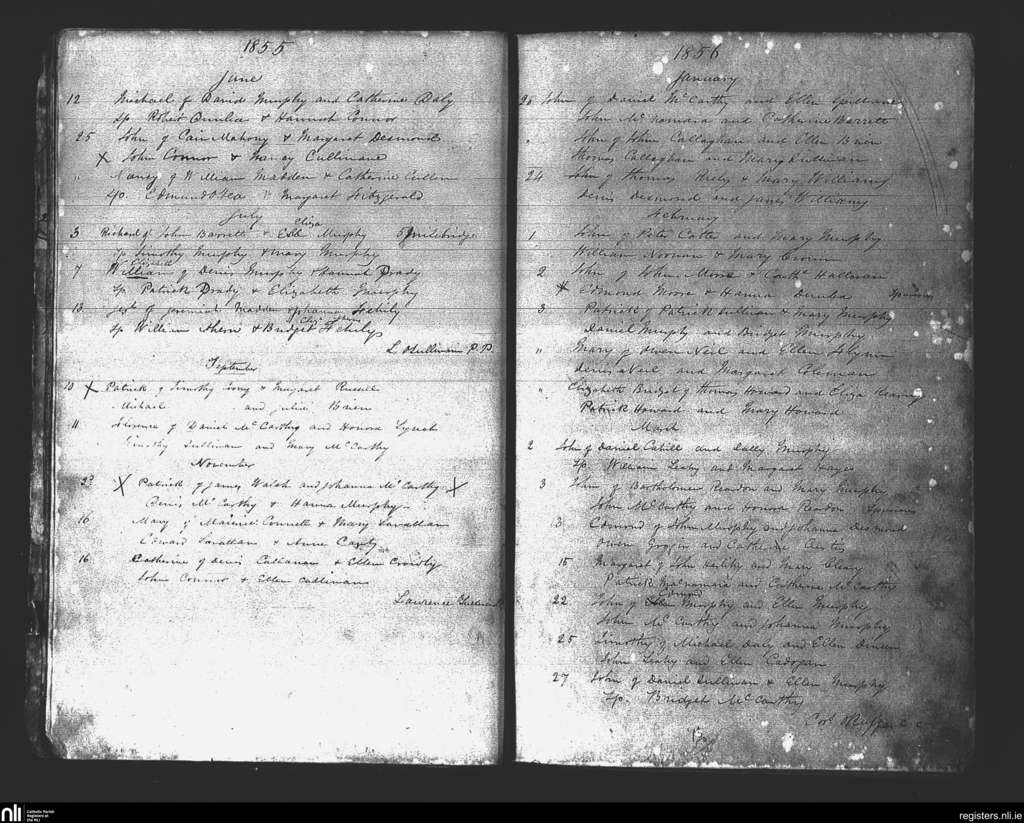 1855
June
12 Michael of David Murphy and Catherine Daly
Sp Robert Dunlea & Hannah Connor
25 John of Cain Mahony & Margaret Desmond
X John Connor & Nancy Cullinane
" Nancy of William Madden & Catherine Cullen
Sp. Edmund O'Lea Margaret Fitzgerald
July
Eliza
3 Richard of John Barrett & Murphy 5 milebridge
Sp Timothy Murphy & Mary Murphy
Elizabeth
7 William of Denis Murphy & Hannah Drady
Sp Patrick Drady & Elizabeth Murphy
13 of Jeremiah Madden Johanna Fehily
Sp William Ahern & Bridget Fehily
L. O'Sullivan P.P.
September
10 X Patrick of Timothy Long & Margaret Russell
Michael and Julia Brien
11 Florence of Daniel McCarthy and Honora Lynch
Timothy Sullivan and Mary McCarthy
November
2d X Patrick of James Walsh and Johanna McCarthy X
Denis McCarthy & Hanna Murphy
16 Mary of Maurice Connell & Mary Savallan
Edward Savallan & Anne Canty
16 Catherine of Denis Callanan & Ellen Crowdly
John Connor & Ellen Cullinane
Lawrence
1856
January
20 John of Daniel McCarthy and Ellen Spillane
John McNamara and Catherine Barrett
" John of John Callaghan and Ellen Brien
Thomas Callaghan and Mary Sullivan
24 John of Thomas and Mary Williams
Denis Desmond and James Williams
February
1 John of Peter Cotter and Mary Murphy
William Noonan & Mary Cronin
2 John of John Moore & Cathe Hallaran
Edmond Moore & Hanna Dunlea Sponsors
3 Patrick of Patrick Sullivan & Mary Murphy
Daniel Murphy and Bridget Murphy
" Mary of Owen Neil and Ellen Flynn
Denis Neil and Margaret Coleman
" Elizabeth Bridget of Thomas Howard and Eliza Kearney
Patrick Howard and Mary Howard
March
2 John of Daniel Cahill and Sally Murphy
Sp. William Leahy and Margaret Hayes
3 John of Bartholomew Reardon and Mary Murphy
John McCarthy and Honora Reardon Sponsors
13 Edmond of John Murphy and Johanna Desmond
Owen Goggin and Catherine
15 Margaret of John Hartley and Mary Cleary
Patrick MacNamara and Catherine McCarthy
Edmond
22 John of Murphy and Ellen Murphy
John McCarthy and Johanna Murphy
25 Timothy of Michael Daly and Ellen Dineen
John Leahy and Ellen Cadogan
27 John of Daniel Sullivan & Ellen Murphy
Sp. Bridget McCarthy
nli
Catholic Parish
Registers at
the NLI
registers.nli.ie